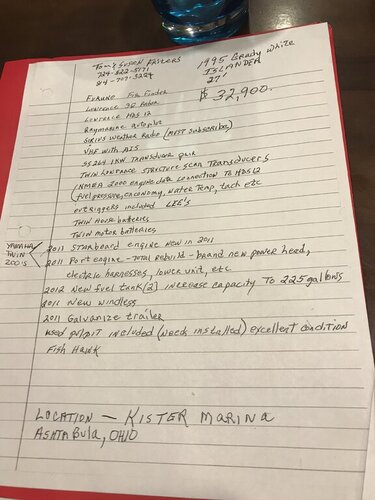 Tom & Susan Kisters
1995 Grady White
724-622-5171
ISLANDER
27'
$ 32,900.
Furuno Fish Finder
Lowrance 3G Radar
Lowrance HDS 12
Raymarine autopilot
Sirius Weather Radio (must subscribe)
VHF with AIS
SS264 1KW Transducer pair
Twin Lowrance Structure Scan Transducers
NMEA 2000 engine data connection to HDS12
(fuel pressure, economy, water temp, tach etc
outriggers included LEE's
Twin House batteries
Twin motor batteries
YAMAHA
TWIN
200's
2011 Starboard engine new in 2011
2011 Port engine - total rebuild - brand new power head,
electric harnesses, lower unit, etc
2012 New fuel tank (2) increase capacity to 225 gallons
2011 New windless
2011 Galvanize trailer
used pulpit included (needs installed) excellent condition
Fish Hawk
LOCATION - KISTER MARINA
ASHTABULA, OHIO